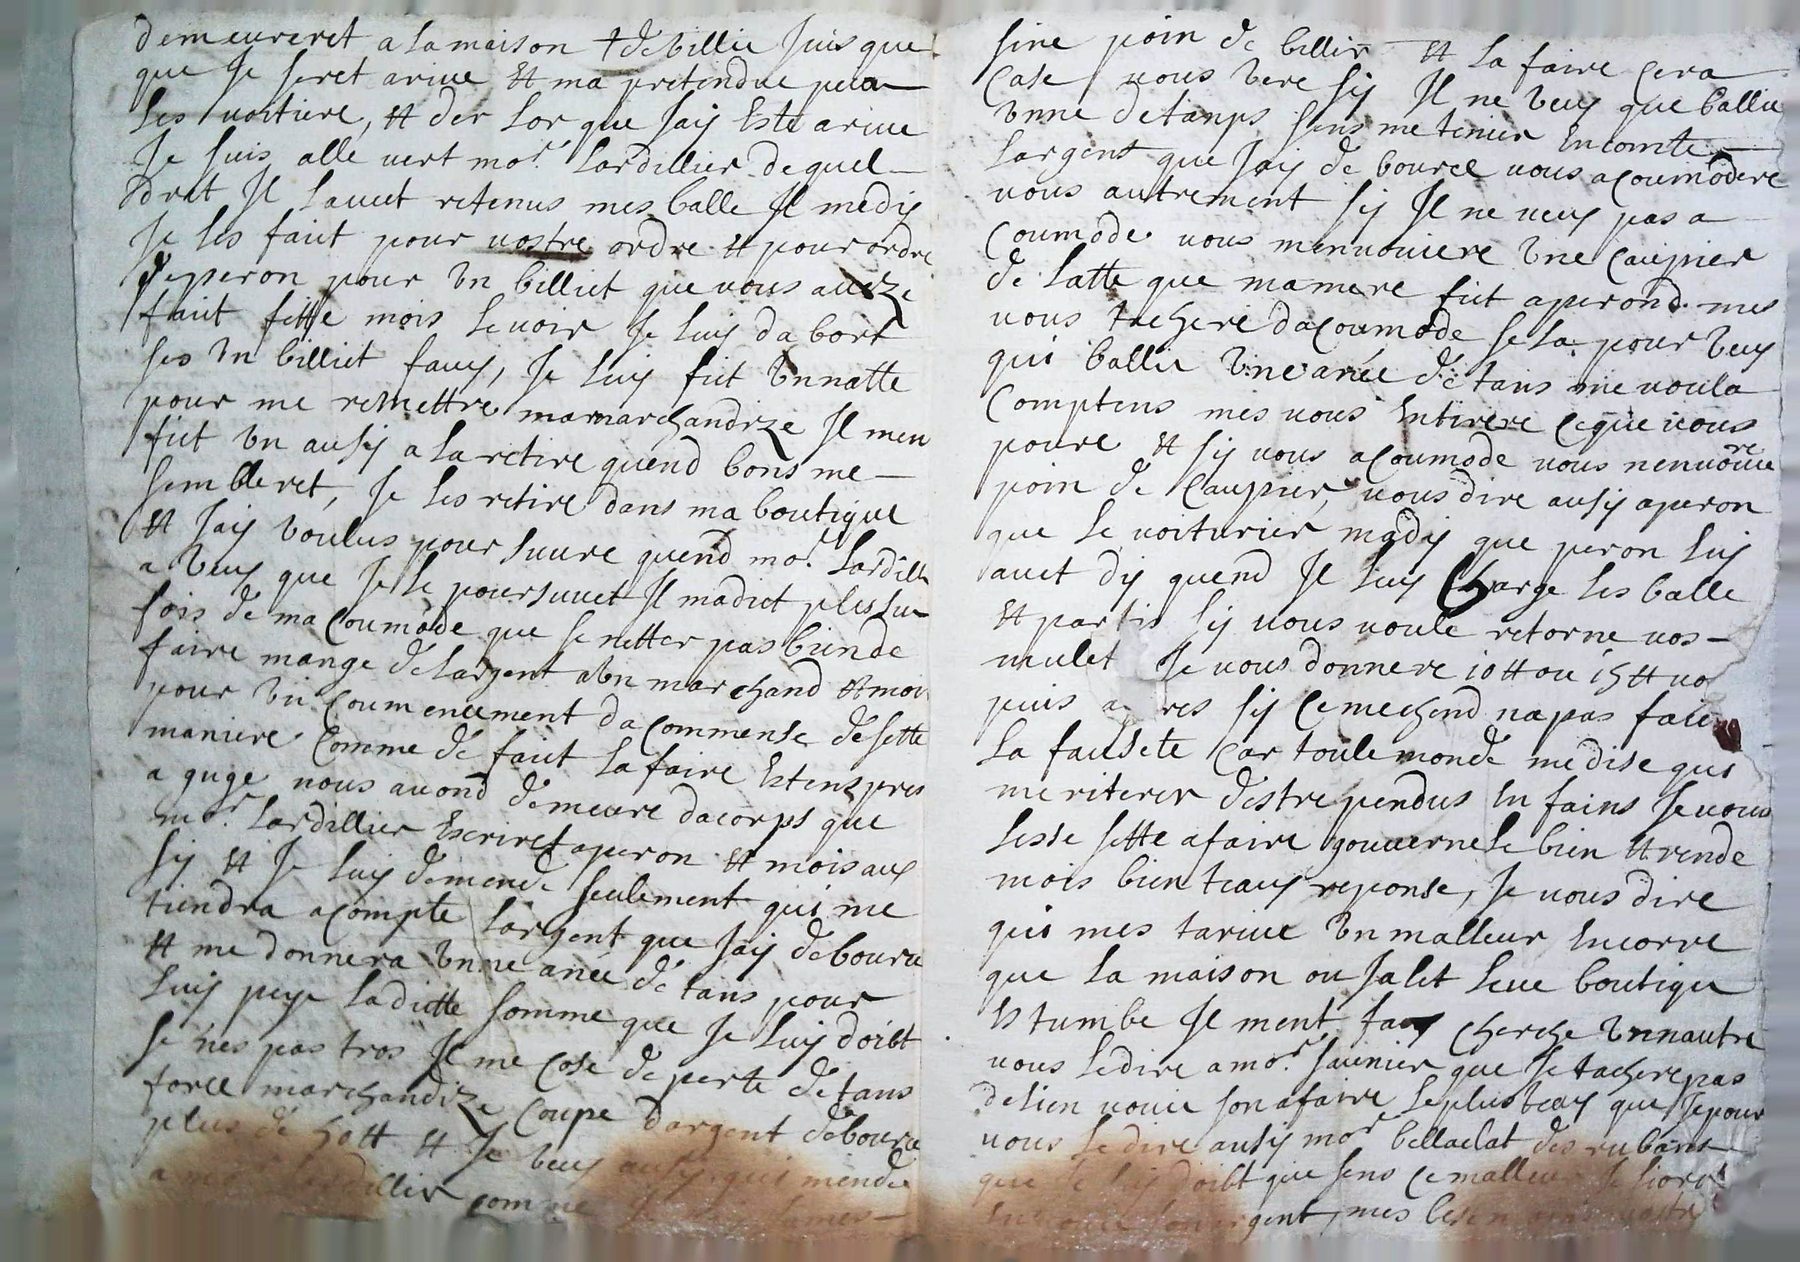 demeureret a la maison † de billie Juis que
que Je seret arive Et ma pretendue peau
les voitiere, Et der lor que Jay Este arive
Je suis alle vert mo.r lardillier dequel
drat Il lauet retenus mes balle Il me dij
Je les fait pour vostre ordre Et pour ordre
deperon pour Un billiet que vous auize
faut fette mois levoir Je luy da bort
ses Un billiet faux, Je luy fict Unnatte
pour me remettre mamarchandize Il men
fict Un ausy a la retire quend bons me
sembleret, Je les retire dans ma boutique
Et Jay voulus poursuure quend mo.r Lardill
a veuy que Je le poursuuet Il madict plussu
fois de ma coumode que Je netter pas biende
faire mange de largent aUn marchand Et moi
pour Un coumencement da commense de sette
maniere comme de faut la faire Estenspres
a guge nous auond demeure dacorps que
mo.r Lardillier Escriret aperon Et mois aux
sy Et Je luy demende seulement qui me
tiendra acompte largent que Jay deboure
Et me donnera Unne anee de tans pour
luy peye laditte somme que Je luy doibt
Se nes pas tros Il me cose de perte de tans
force marchandize coupe dargent deboure
plus de Et Je veuy ausy qui mende
a lardillier comme
sine poin de billir Et la faire cera
case vous vere sy Il ne veuy que ballie
Unne detanps sens me tenier En comte
largent que Jay de bource vous acoumodere
vous autrement sy Il ne veuy pas a
coumode vous menvouiere Une caupier
de latte que mamere fict aperond mes
vous tachere dacoumode sela pour veuy
qui ballie Une anée de tans me voula
comptens mes vous Entirere ceque vous
poure Et sy vous acoumode vous nenvouie
re
poin de caupier, vous dire ausy aperon
que le voiturier madij que peron luy
auet dy quend Il luy charge les balle
Et partis sy vous voule retorne vos
mulet Je vous donnere 10tt ou 15tt vo
puis a res sy cemechend napas faie
la fausete car toulemonde medise qui
meriterer destre pendus En fains Je vous
lesse sette afaire gouuerne le bien Et rende
mois bien taux reponse, Je vous dire
qui mes tarive Un malleur Encorre
que la maison ou Jalet leue boutique
Es tumbe Il ment faux cherche Unnautre
vous ledire a mo.r saunier que Je tacherepas
delien vouie son afaire leplus veuy que Jepour
vous le dire ausy mo.r bellaclat des rubans
que Je luy doibt que sens ce malleur Je
argent, mes